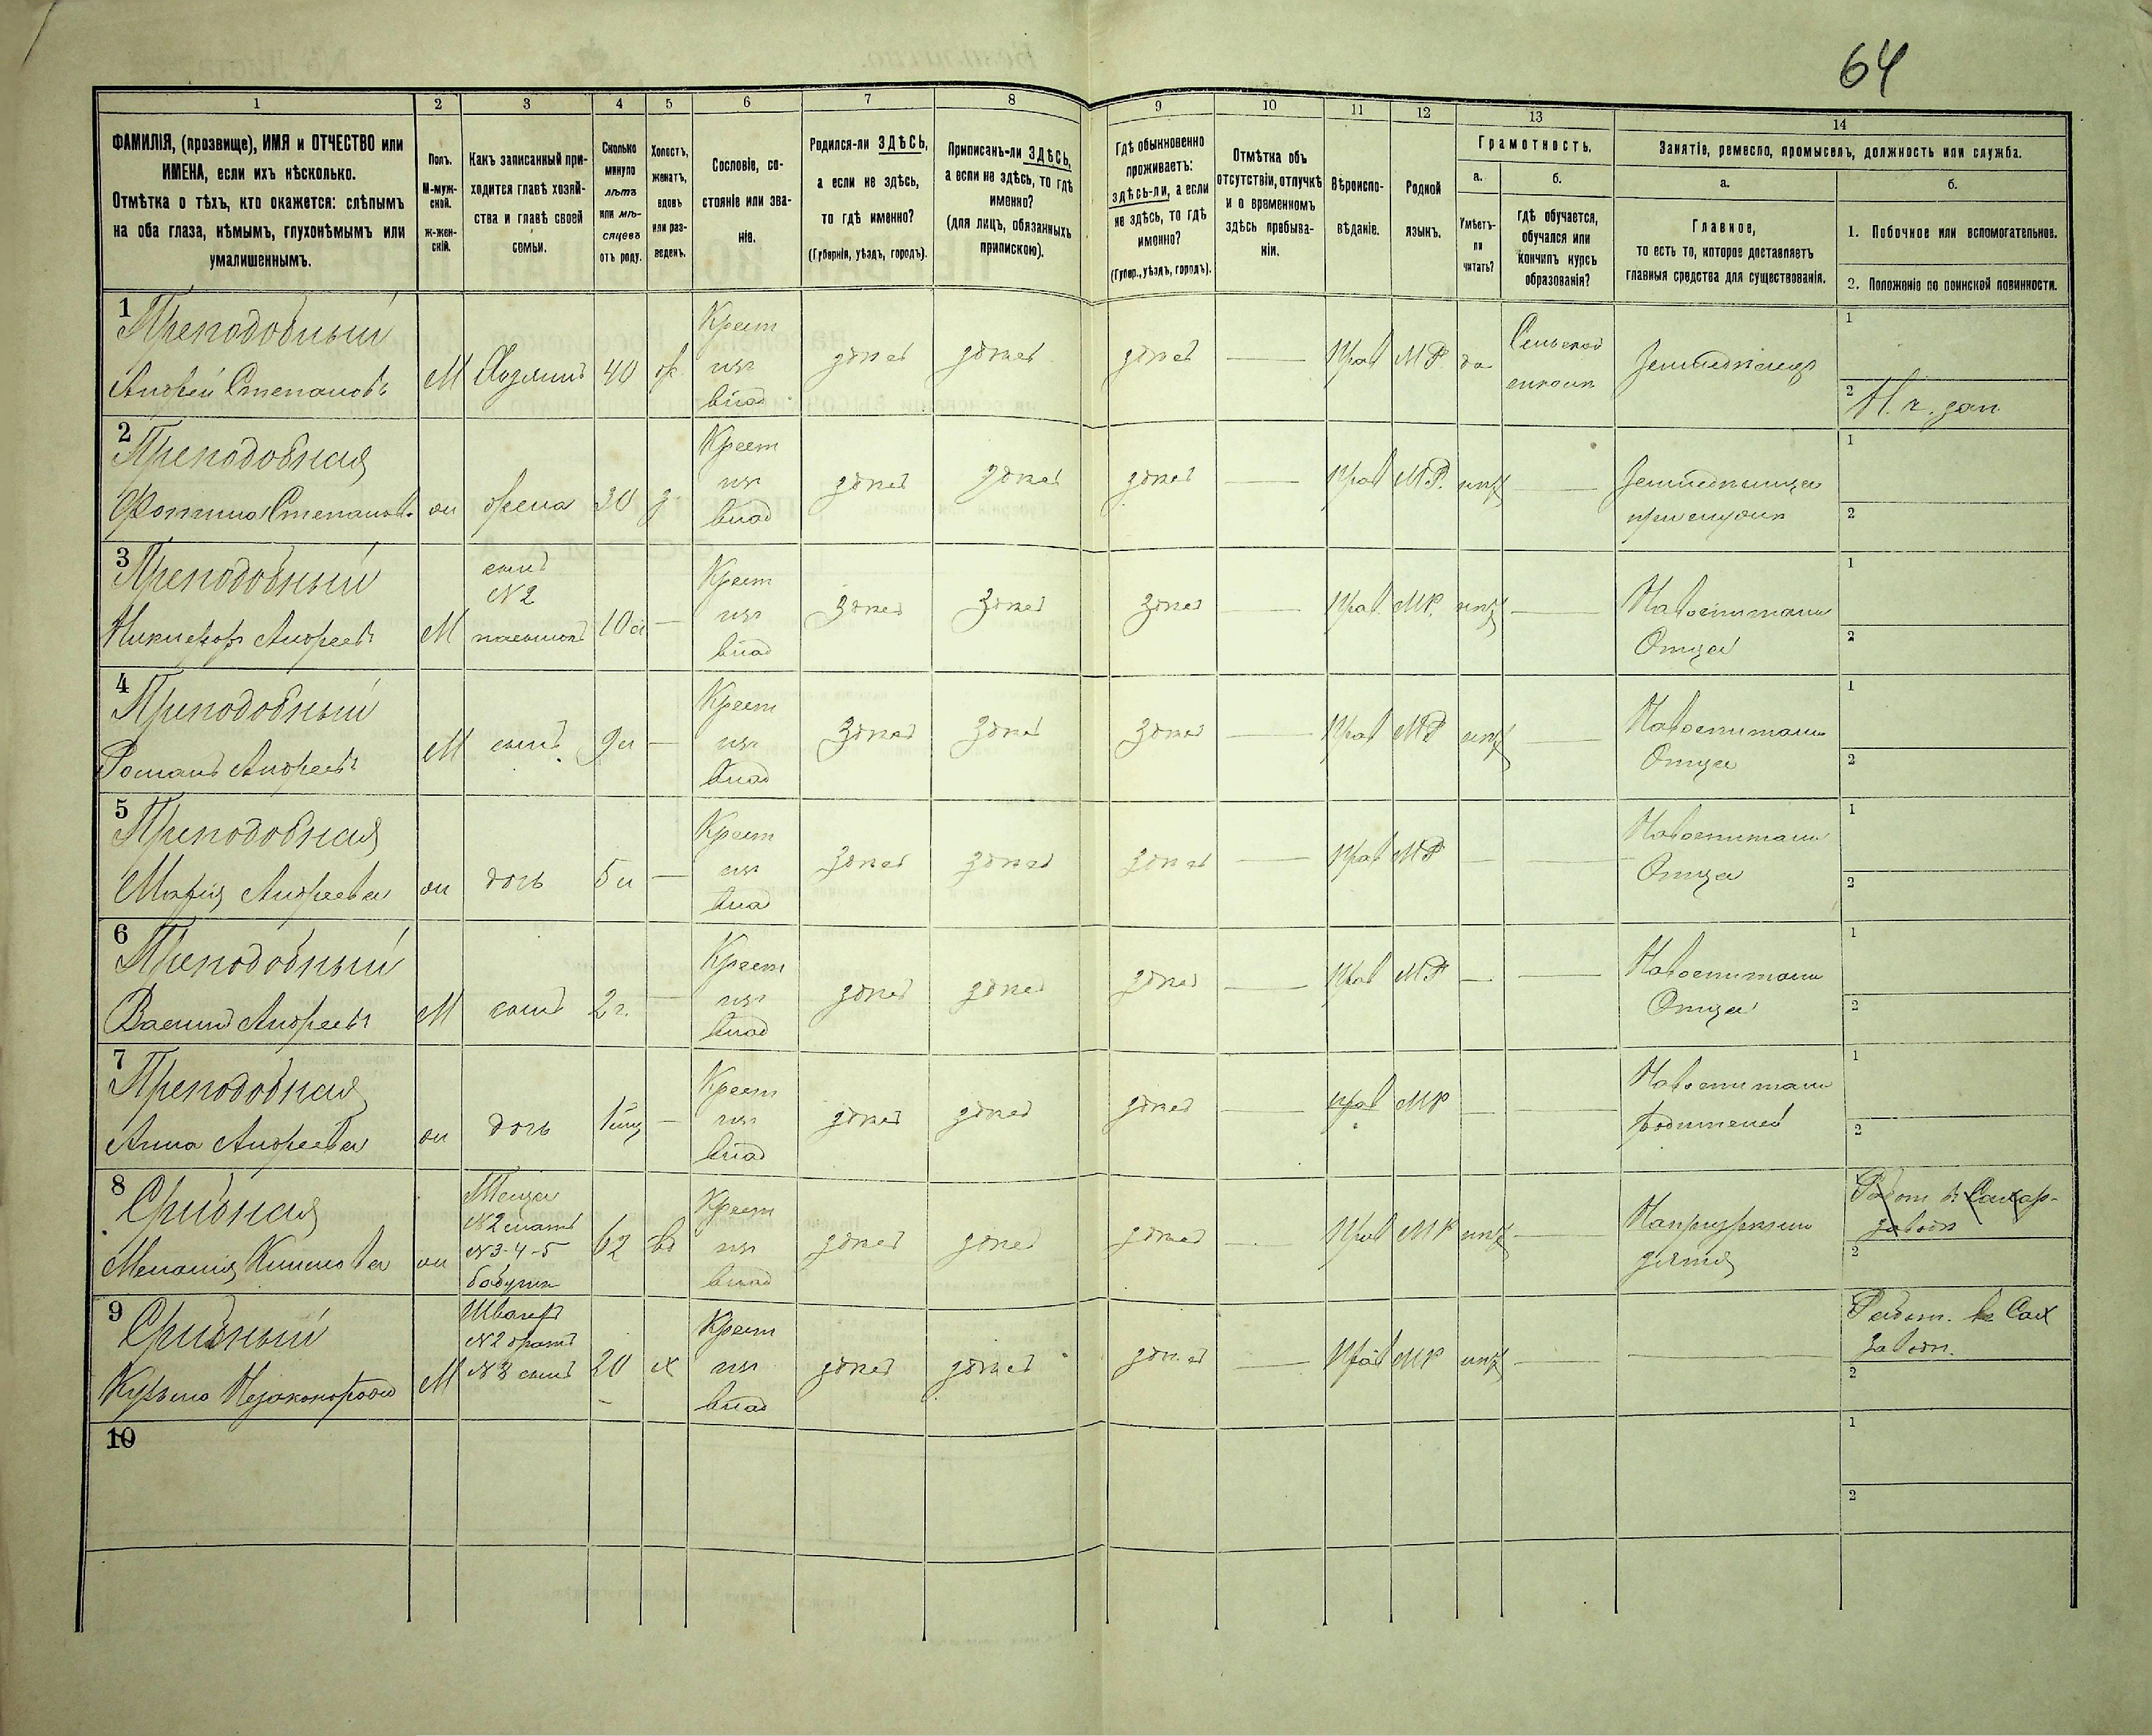 64
1 2 3 4 5 6 7 8 9 10 11 12 13 14
ФАМИЛІЯ, (прозвище), ИМЯ и ОТЧЕСТВО или
ИМЕНА, если ихъ нѣсколько.
Отмѣтка о тѣхъ, кто окажется: слѣпымъ
на оба глаза, нѣмымъ, глухонѣмымъ или
умалишеннымъ.
Полъ.
М-муж-
ской.
Ж-жен-
скій.
Какъ записанный при-
ходится главѣ хозяй-
ства и главѣ своей
семьи.
Сколько
минуло
лѣтъ
или мѣ-
сяцевъ
отъ роду.
Холостъ,
женатъ,
вдовъ
или раз-
веденъ.
Сословіе, со-
стояніе или зва-
ніе.
Родился-ли ЗДѢСЬ,
а если не здѣсь,
то гдѣ именно?
(Губернія, уѣздъ, городъ).
Приписанъ-ли ЗДѢСЬ,
а если не здѣсь, то гдѣ
именно?
(для лицъ, обязанныхъ
припискою).
Гдѣ обыкновенно
проживаетъ:
здѣсь-ли, а если
не здѣсь, то гдѣ
именно?
(Губер., уѣздъ, городъ).
Отмѣтка объ
отсутствіи, отлучкѣ
и о временномъ
здѣсь пребыва-
ніи.
Вѣроиспо-
вѣданіе.
Родной
языкъ.
Грамотность.
а.
Умѣетъ-
ли
читать?
б.
гдѣ обучается,
обучался или
кончилъ курсъ
образованія?
Занятіе, ремесло, промыселъ, должность или служба.
а.
Главное,
то есть то, которое доставляетъ
главныя средства для существованія.
б.
1. Побочное или вспомогательное.
2. Положеніе по воинской повинности.
1
Преподобный
Андрей Степановъ
М Хозяинъ 40 ж.
Крест
изъ
влад
здѣсь здѣсь здѣсь — Прав МР да
Сельской
школѣ
Земледѣлецъ
1
2
2
Преподобная
Степанов.
ж жена 30 з.
Крест
изъ
влад
здѣсь здѣсь здѣсь — Прав МР. нѣтъ —
1
2
3
Преподобный
Никифоръ Андреевъ
М
сынъ
№2
пасынокъ
10 л —
Крест
изъ
влад
здѣсь здѣсь здѣсь — Прав. МР. нѣтъ —
На воспитаніи
Отца
1
2
4
Преподобный
Романъ Андреевъ
М сынъ 9 л —
Крест
изъ
влад
здѣсь здѣсь здѣсь — Прав МР нѣтъ —
На воспитаніи
Отца
1
2
5
Преподобная
Марія Андреева
ж дочь 5 л —
Крест
изъ
влад
здѣсь здѣсь здѣсь — Прав МР — —
На воспитаніи
Отца
1
2
6
Преподобный
Василій Андреевъ
М сынъ 2 г. —
Крест
изъ
влад
здѣсь здѣсь здѣсь — Прав МР — —
На воспитаніи
Отца
1
2
7
Преподобная
Анна Андреева
ж дочь —
Крест
изъ
влад
здѣсь здѣсь здѣсь — Прав МР — —
На воспитаніи
родителей
1
2
8
Срибная
Меланія Климова
ж
Теща
№2 мать
№3-4-5
бабушка
62 вд
Крест
изъ
влад
здѣсь здѣсь здѣсь — Прав МР нѣтъ —
дѣтей
Работ въ Сахар-
заводѣ
2
9
Срибный
Кузьма Незаконорожд
М
Швагеръ
№2 братъ
№8 сынъ
20 х
Крест
изъ
влад
здѣсь здѣсь здѣсь — Прав МР нѣтъ — —
Работ. въ Сах
заводѣ.
2
10
1
2